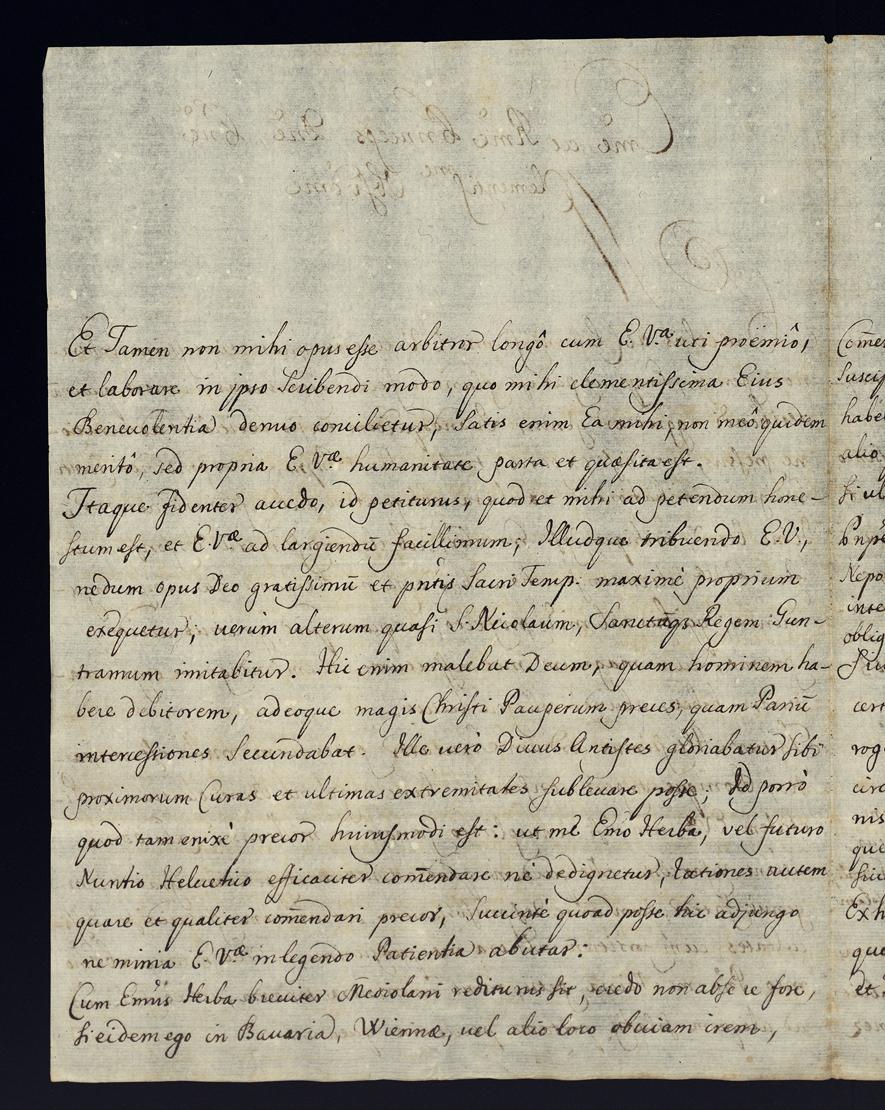 Et Tamen non mihi opus esse arbitror longô cum E. Vᵃ uti proëmiô,
et laborare in jpso scribendi modo, quo mihi clementissima Eius
Benevolentia denuo concilietur, satis enim Ea mihi, non meô quidem
meritô, sed propria E. Vᵃᵉ humanitate parta et quæsita est.
Itaque fidenter accedo, id petiturus, quod et mihi ad petendum hone-
stum est, et E. Vᵃᵉ ad largiendū facillimum; Illudque tribuendo E. V.,
nedum opus Deo gratissimū et pn̄tis Sacri Temp: maximè proprium
exequetur; verùm alterum quasi S. Nicolaum, Sanctūqs Regem Gun-
tramum imitabitur. Hic enim malebat Deum, quam hominem ha-
bere debitorem, adeoque magis Christi Pauperum preces, quam Pariū
intercessiones Secundabat. Ille verò Divus Antistes gloriabatur sibi
proximorum Curas et ultimas extremitates sublevare posse; Id porrò
quod tam enixè precor huiusmodi est: ut me Emo Herba, vel futuro
Nuntio Helvetico efficaciter com̄endare ne dedignetur, rationes autem
quare et qualiter com̄endari precor, succintè quoad posse hic adjungo
ne nimia E. Vᵃᵉ in legendo Patientia abutar:
Cum Emūs Herba breviter Mediolani rediturus sit, credo non abs re fore,
si eidem ego in Bavaria, Wiennæ, vel alio loco obviam irem,